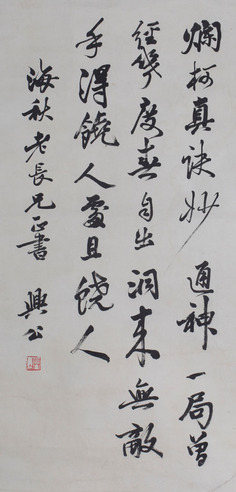 爛柯真訣妙通神一局曾
經幾度春自出洞来無敵
手得饒人處且饒人
海秋老長兄正書 興公